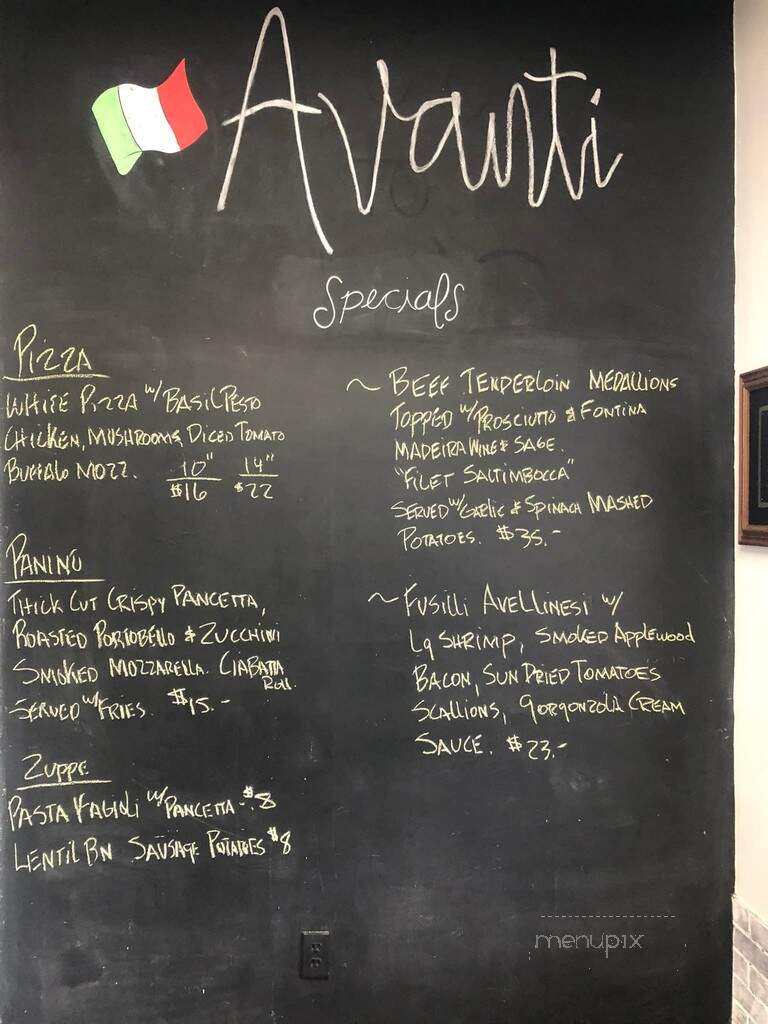 Avanti
Specials
Pizza
White Pizza w/ Basil Pesto
Chicken, Mushrooms, Diced Tomato
Buffalo Mozz. 10" 14"
$16 $22
Panino
Thick Cut Crispy Pancetta,
Roasted Portobello & Zucchini
Smoked Mozzarella. Ciabatta
Roll.
Served w/ Fries. $15.-
Zuppe
Pasta Fagioli w/ Pancetta - $8
Lentil Bn Sausage Potatoes $8
~ Beef Tenderloin Medallions
Topped w/ Prosciutto & Fontina
Madeira Wine & Sage.
"Filet Saltimbocca"
Served w/ Garlic & Spinach Mashed
Potatoes. $35.-
~ Fusilli Avellinesi w/
Lg Shrimp, Smoked Applewood
Bacon, Sun Dried Tomatoes
Scallions, Gorgonzola Cream
Sauce. $23.-
menupix